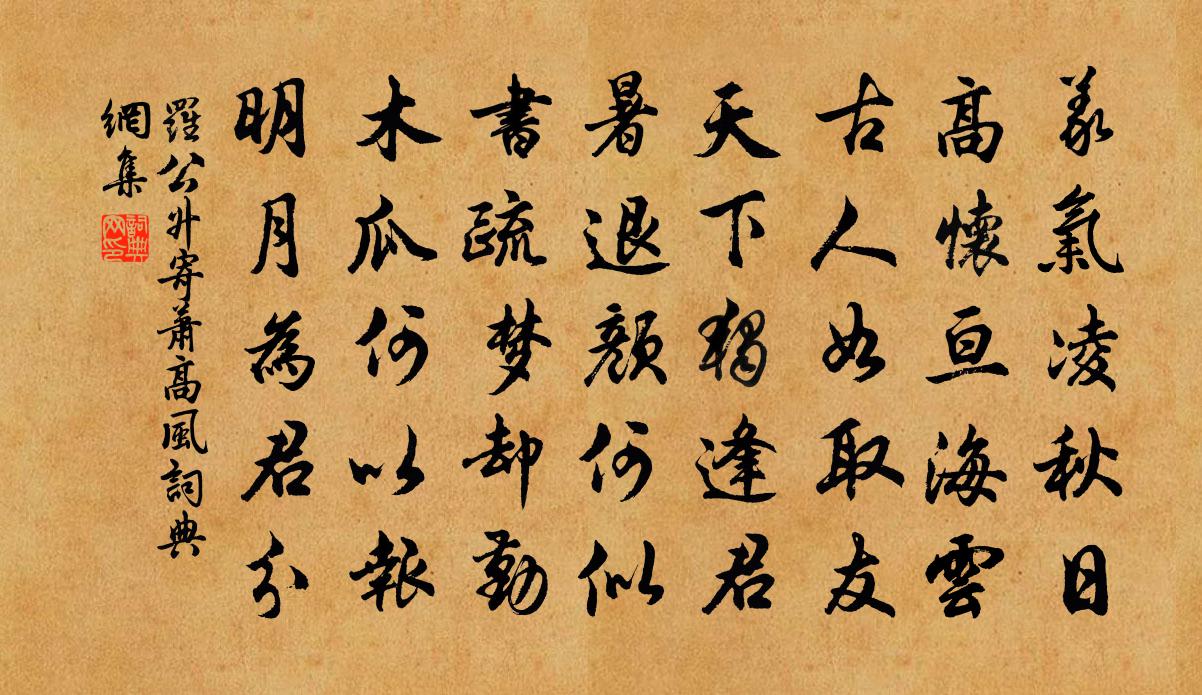 義氣凌秋日
高懷亘海雲
古人如取友
天下獨逢君
暑退顏何似
書疏梦却勤
木瓜何以報
明月為君分
羅公升寄蕭高風詞典
網集
詞典
网印